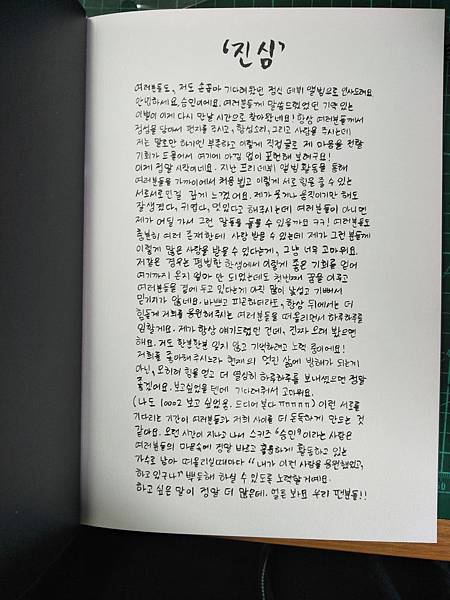 '진심'
여러분들도, 저도 손꼽아 기다려왔던 정식 데뷔 앨범으로 인사드려요.
안녕하세요, 승민이에요. 여러분들께 말씀드렸었던 기약 있는
이별이 이제 다시 만날 시간으로 찾아왔네요! 항상 여러분들께서
정성을 담아서 편지를 주시고, 항상 소리, 그리고 사랑을 주시는데
저는 말로만 하기엔 부족하고 이렇게 직접 글로 제 마음을 전할
기회가 드물어서 여기에 아낌 없이 표현해 보려구요!
이제 정말 시작이네요. 지난 프리 데뷔 앨범 활동을 통해
여러분들을 가까이에서 처음 뵙고 이렇게 서로 힘을 줄 수 있는
서로서로인걸 깊게 느꼈어요. 제가 웃거나 움직이기만 해도
잘생겼다, 귀엽다, 멋있다고 해주시는데 여러분들이 아니면
제가 어딜 가서 그런 말들을 들을 수 있을까요 ㅋㅋ! 여러분들도
충분히 여러 존재한테 사랑 받을 수 있는데 제가 그런 분들께
이렇게 많은 사랑을 받을 수 있다는게, 그냥 너무 고마워요.
저같은 경우는 평범한 학생에서 이렇게 좋은 기회를 얻어
여기까지 온지 얼마 안 되었는데도 첫번째 꿈을 이루고
여러분들을 곁에 두고 있다는게 아직 많이 낯설고 기뻐서
믿기지가 않네요. 바쁘고 피곤하더라도, 항상 뒤에서는 더
힘들게 저희를 응원해주시는 여러분들을 떠올리면서 하루하루를
임할게요. 제가 항상 얘기드렸던 건데, 진짜 오래 봤으면
해요. 저도 한분한분 잊지 않고 기억하려고 노력 중이에요!
저희를 좋아해 주시느라 현재의 멋진 삶에 방해가 되는게
아닌, 오히려 힘을 얻고 더 열심히 하루하루를 보내셨으면 정말
좋겠어요. 보고싶었을 텐데 기다려줘서 고마워요.
(나도 1000z 보고 싶었응. 드디어 본다 ㅠㅠㅠㅠㅠ) 이런 서로를
기다리는 기간이 여러분들과 저희 사이를 더 돈독하게 만드는 것
같아요. 오랜 시간이 지나고 나서 스키즈 '승민'이라는 사람은
여러분들의 마음속에 정말 바르고 훌륭하게 활동하고 있는
가수로 남아 떠올리실때마다 "내가 이런 사람을 응원했었고,
하고 있구나" 뿌듯해 하실 수 있도록 노력할거에요.
하고 싶은 말이 정말 더 많은데. 얼른 봐요 우리 팬분들!!